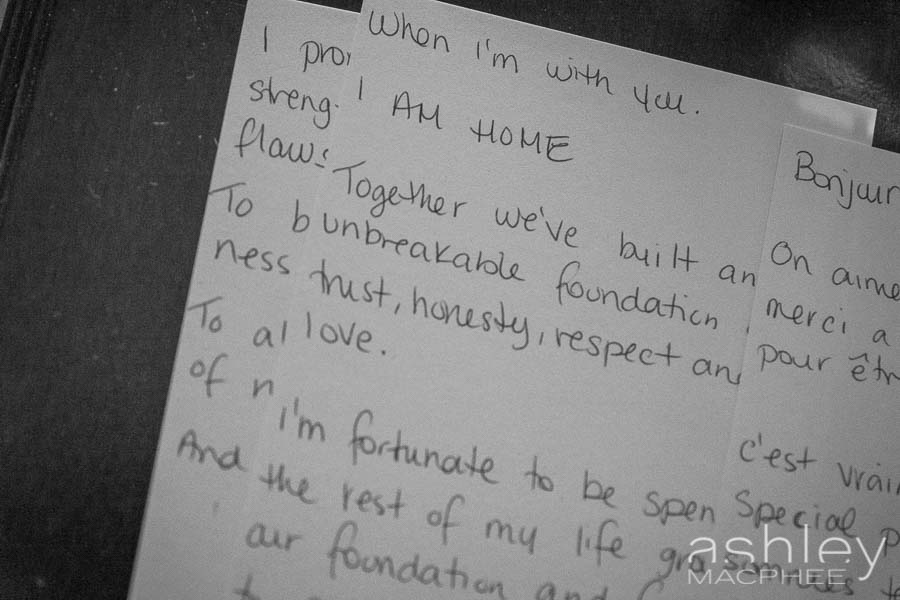 I
streng
flaws
To b
ness
To al
of n
And
When I'm with you.
I AM HOME
Together we've built an
unbreakable foundation
trust, honesty, respect an
love.
I'm fortunate to be spen
the rest of my life
our foundation and
Bonjour
On aime
merci a
pour êtr
c'est vrai
Special p
ashley
MACPHEE